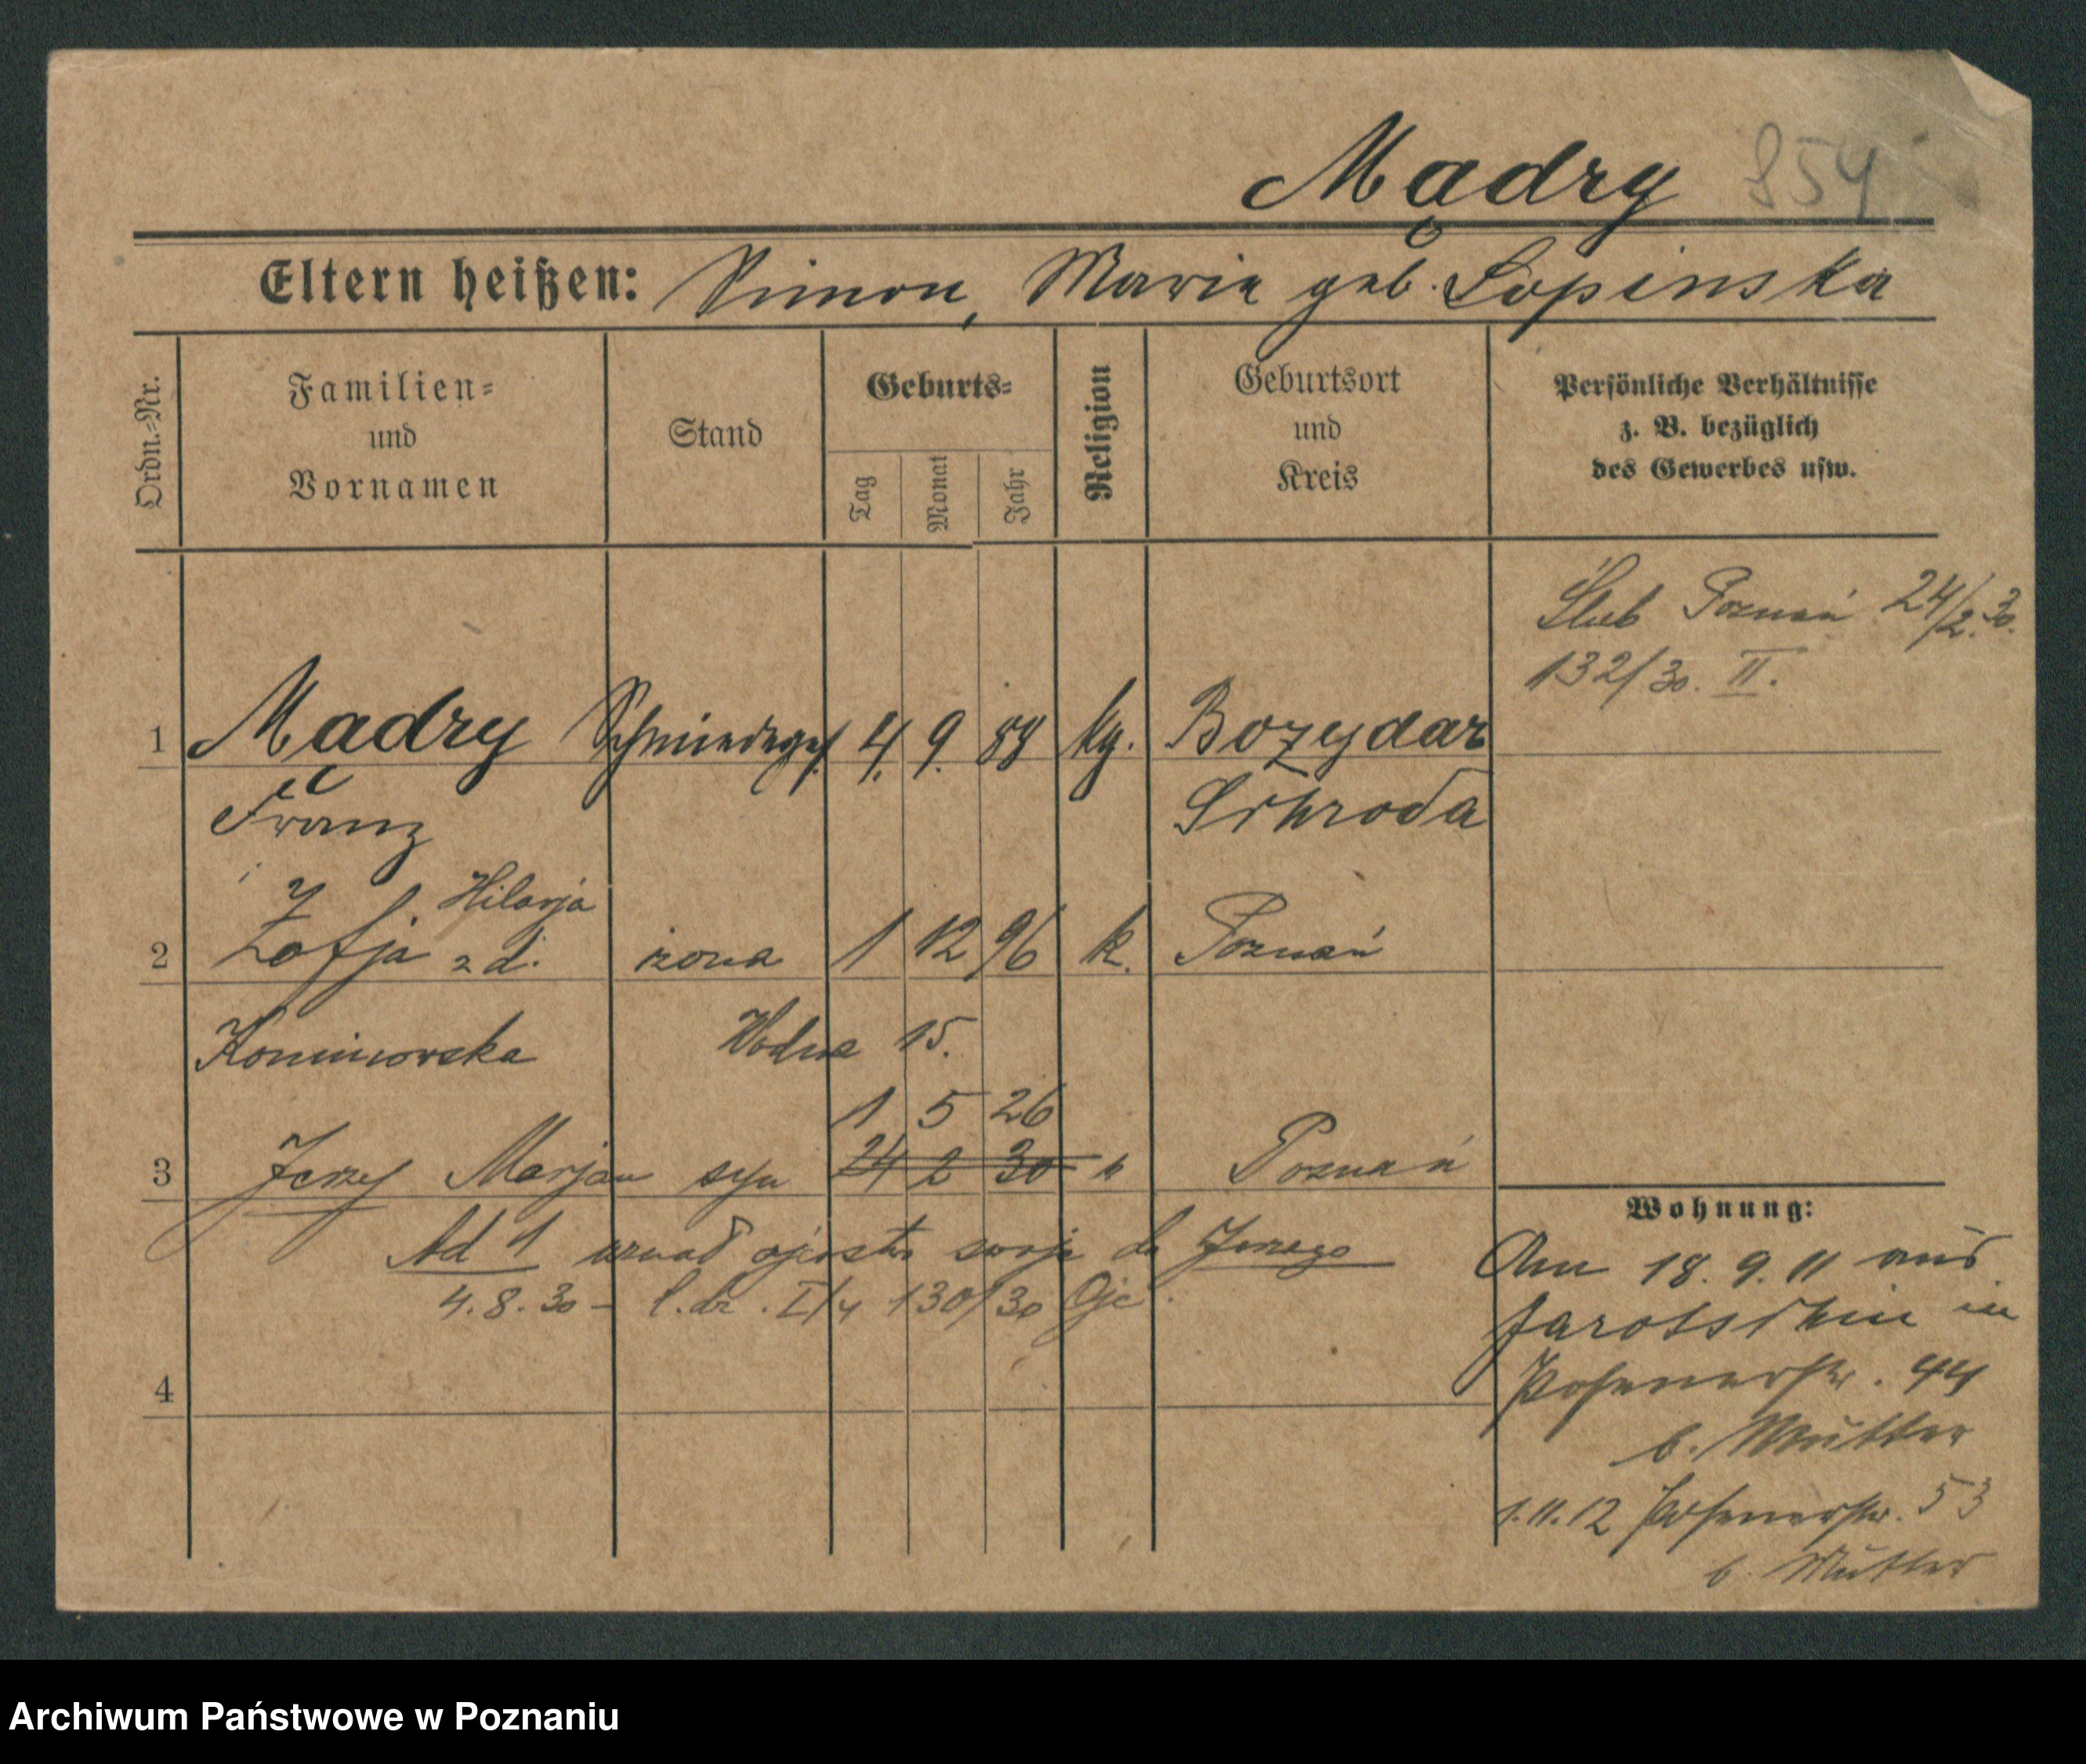 Mądry 854
Eltern heißen: Simon, Marie geb. Lopinska
Ordn.-Nr.
Familien-
und
Vornamen
Stand
Geburts-
Tag
Monat
Jahr
Religion
Geburtsort
und
Kreis
Persönliche Verhältnisse
z. B. bezüglich
des Gewerbes usw.
Ślub Poznań 24/2. 30.
132/30. II.
1 Mądry Schmiedeges. 4. 9. 88 kg. Bozydar
Franz Schroda
Hilarja
2 Zofja z d. żona 1 12 96 k. Poznań
Kominowska Wodna 15.
1 5 26
3 Jerzy Marjan syn 24 2 30 " Poznań
Ad 1 uznał ojcostwo swoje do Jerzego
4.8.30 – l.dz. I/4 130/30 Ojc.
4
Wohnung:
Am 18.9.11 aus
Jarotschin in
Posenerstr. 44
b. Mutter
1.11.12 Posenerstr. 53
b. Mutter
Archiwum Państwowe w Poznaniu